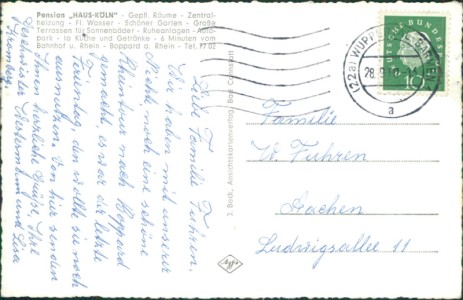 Pension „HAUS-KÖLN" - Gepfl. Räume - Zentral-
heizung - Fl. Wasser - Schöner Garten - Große
Terrassen für Sonnenbäder - Ruheanlagen - Auto-
park - Ia Küche und Getränke - 6 Minuten vom
Bahnhof u. Rhein - Boppard a. Rhein - Tel.
Liebe Familie Fuhren,
Wir haben mit unserer
Nichte noch eine schöne
Rheintour nach Boppard
gemacht, es war der letzte
Ferientag, den wollte sie noch
ausnutzen. Von hier senden
Ihnen herzliche Grüße, Ihre
Geschwister und Lisa
J. Beck, Ansichtskartenverlag, Bad
Agfa
DEUTSCHE BUNDESPOST
10
(22a) WUPPERTAL
28.9.
a
Familie
W. Fuhren
Aachen
Ludwigsallee 11